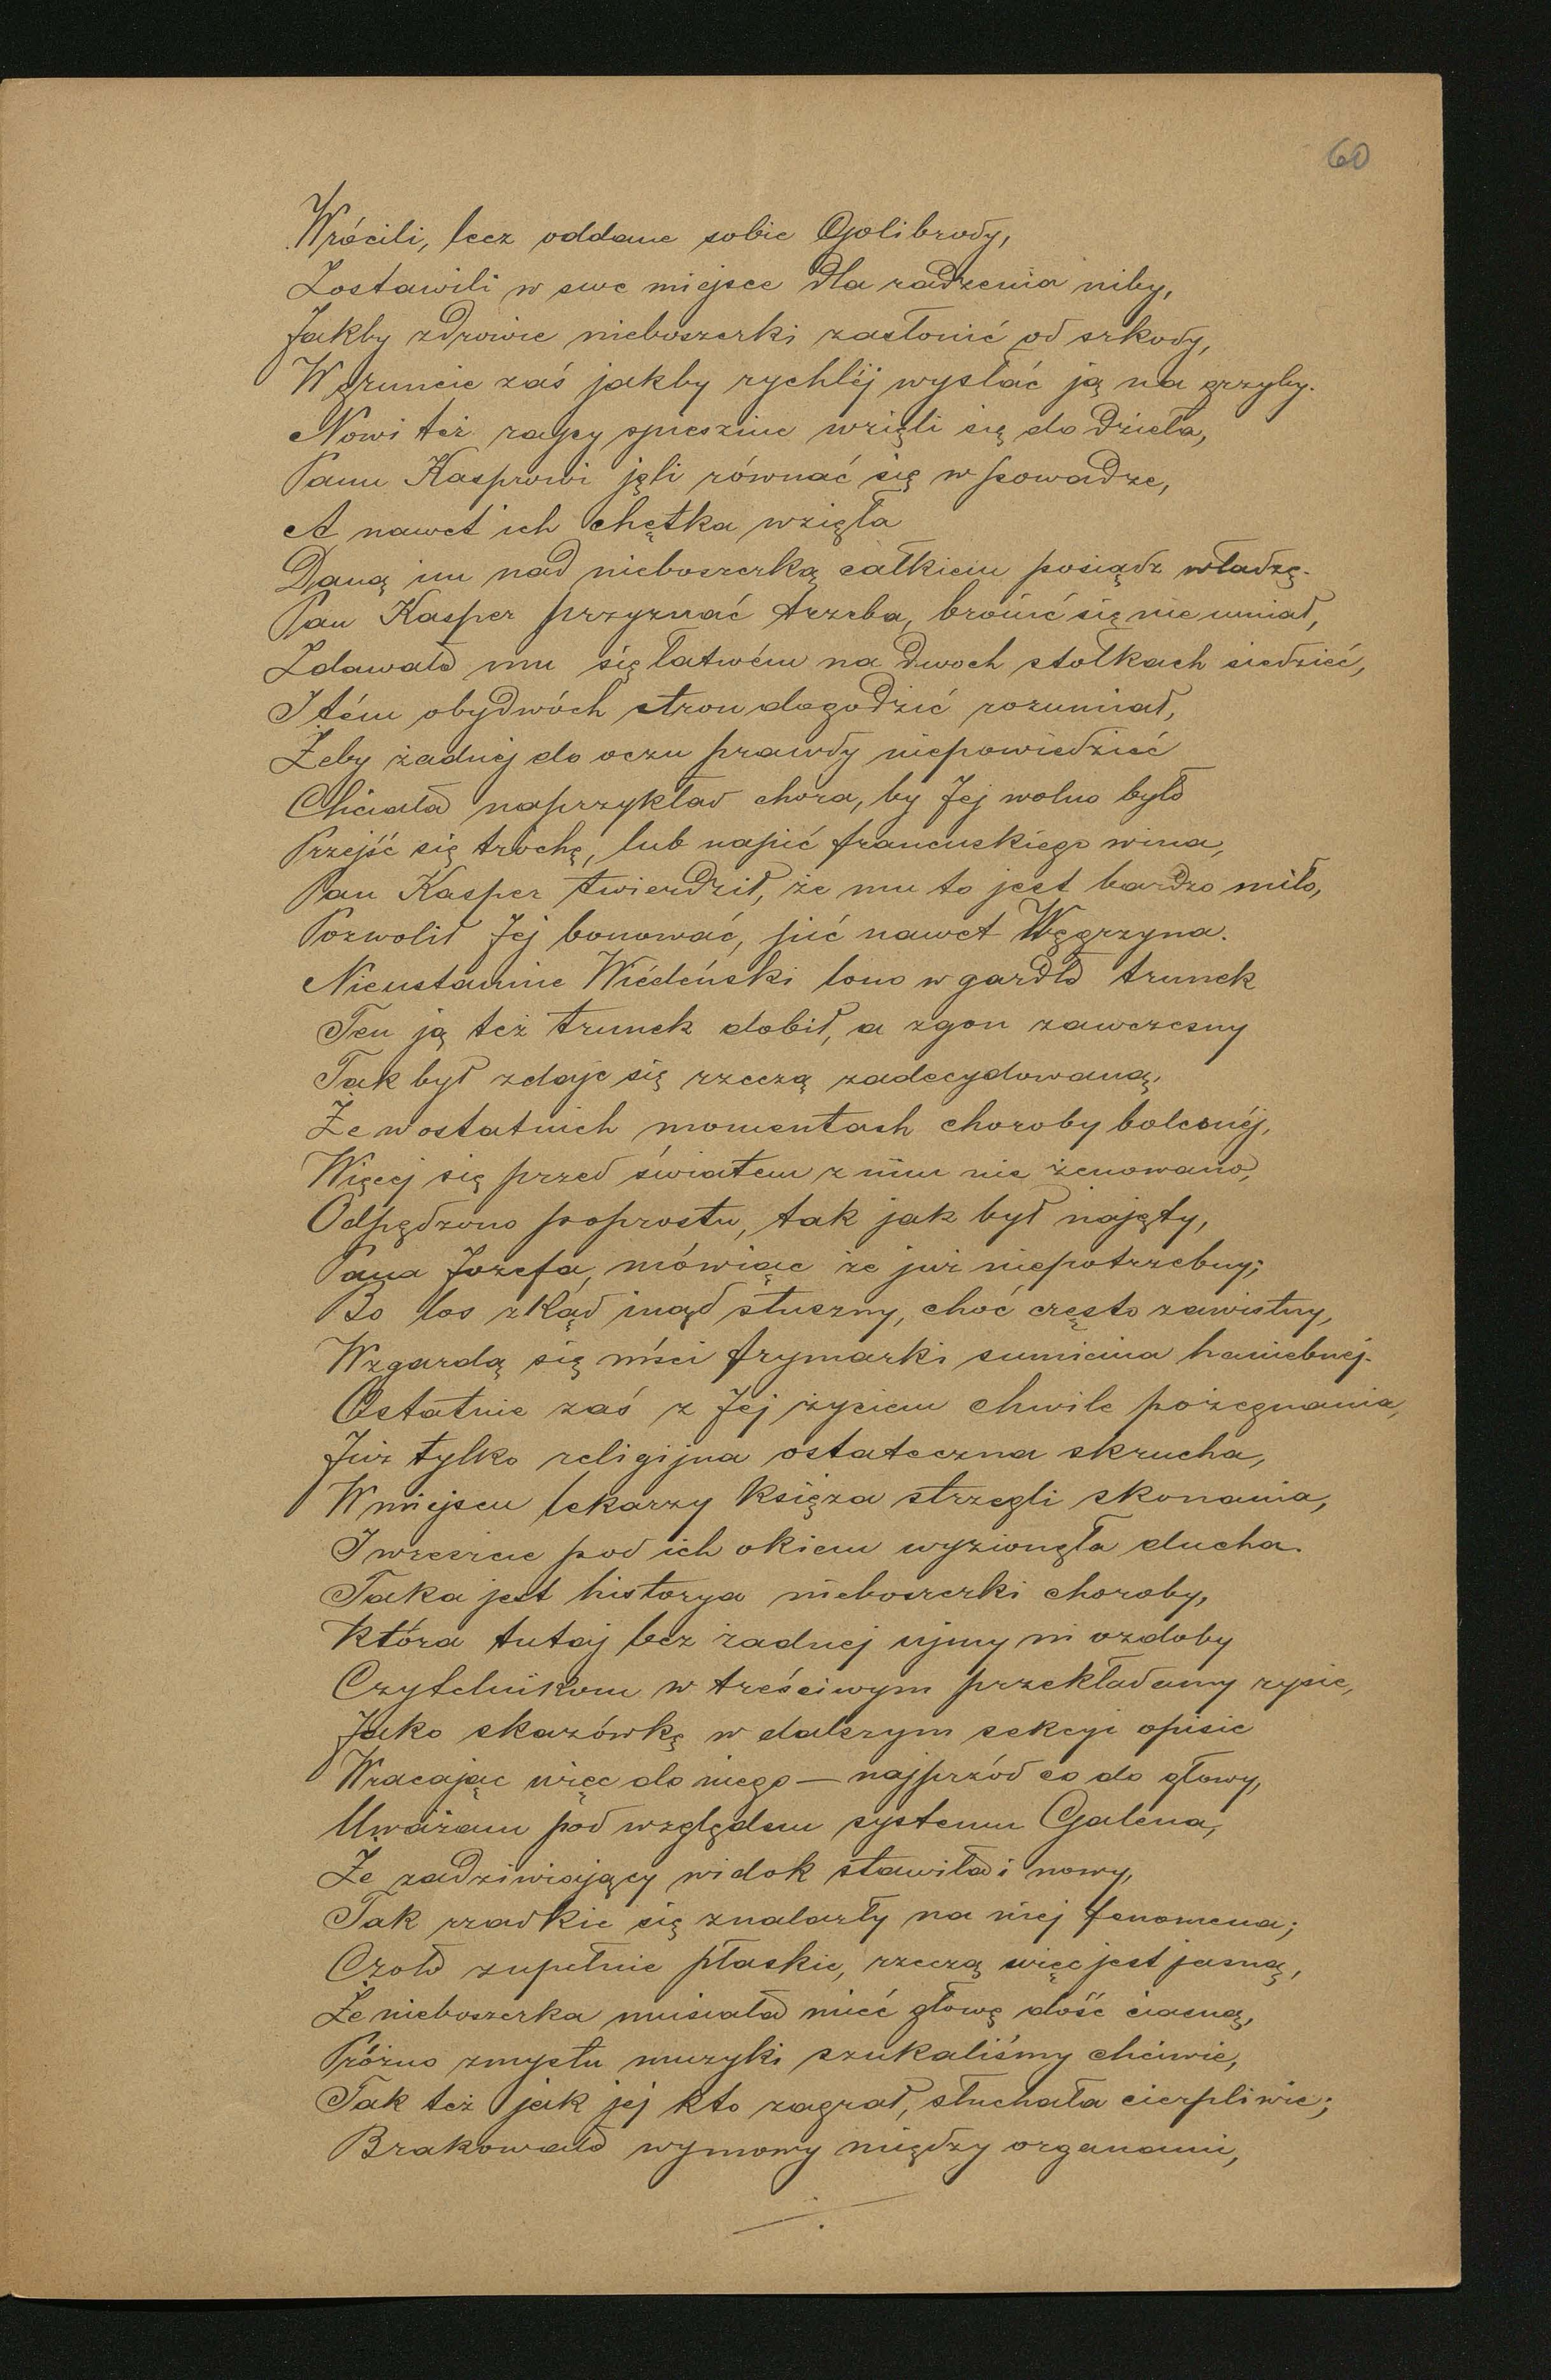 60
Wrócili, lecz oddane sobie Golibrody,
Zostawili w swe miejsce dla radzenia niby,
Jakby zdrowie nieboszczki zasłonić od szkody,
W gruncie zaś jakby rychléj wysłać ją na grzyby.
Nowi też rajcy spiesznie wzięli się do dzieła,
Panu Kasprowi jęli równać się w powadze,
A nawet ich chętka wzięła
Daną im nad nieboszczką całkiem posiądz władzę.
Pan Kasper przyznać trzeba, bronić się nie umiał,
Zdawało mu się łatwém na dwoch stołkach siedzieć,
I tém obydwóch stron dogodzić rozumiał,
Żeby żadnéj do oczu prawdy niepowiedzieć
Chciała naprzykład chora, by Jej wolno było
Przejść się trochę, lub napić francuskiego wina,
Pan Kasper twierdził, że mu to jest bardzo miło,
Pozwolił Jej bonować, pić nawet Węgrzyna.
Nieustannie Wiédeński lono w gardło trunek
Ten ją też trunek dobił, a zgon zawczesny
Tak był zdaje się rzeczą zadecydowaną,
Że w ostatnich momentach choroby bolesnéj,
Więcej się przed światem z nim nie żenowano,
Odpędzono poprostu, tak jak był najęty,
Pana Jozefa, mówiąc że już niepotrzebny;
Bo los zkąd inąd słuszny, choć często zawistny,
Wzgardą się mści frymarki sumienia haniebnej.
Ostatnie zaś z Jej życiem chwile pożegnania,
Już tylko religijna ostateczna skrucha,
W miejscu lekarzy księża strzegli skonania,
I wreszcie pod ich okiem wyzionęła ducha.
Taka jest historya nieboszczki choroby,
Która tutaj bez żadnej ujmy ni ozdoby
Czytelnikom w treściwym przekładamy rysie,
Jako skazówkę w dalszym sekcyi opisie
Wracając więc do niego — najprzód co do głowy,
Uważam pod względem systemu Galena,
Że zadziwiający widok stawiła i nowy,
Tak rzadkie się znalazły na niej fenomena;
Czoło zupełnie płaskie, rzeczą więc jest jasną,
Że nieboszczka musiała mieć głowę dość ciasną,
Próżno zmysłu muzyki szukaliśmy chciwie,
Tak też jak jej kto zagrał, słuchała cierpliwie;
Brakowało wymowy między organami,